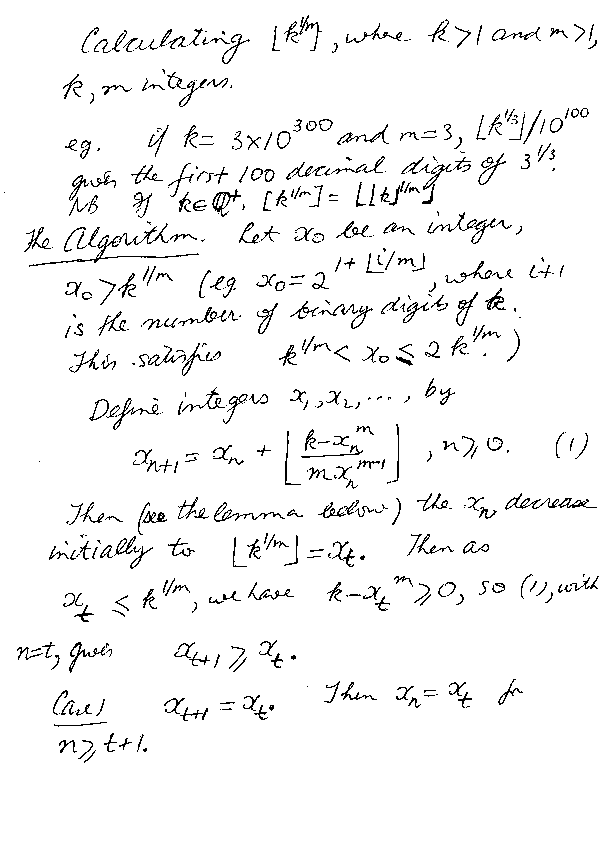 Calculating ⌊k^{1/m}⌋, where k>1 and m>1,
k, m integers.
eg. if k = 3×10^{300} and m=3, ⌊k^{1/3}⌋/10^{100}
gives the first 100 decimal digits of 3^{1/3}.
NB If k∈ℚ⁺, ⌊k^{1/m}⌋ = ⌊⌊k⌋^{1/m}⌋
The Algorithm. Let x₀ be an integer,
x₀ > k^{1/m} (eg x₀ = 2^{1+⌊i/m⌋}, where i+1
is the number of binary digits of k.
This satisfies k^{1/m} < x₀ ≤ 2 k^{1/m}.)
Define integers x₁, x₂, ..., by
x_{n+1} = x_n + ⌊(k−x_n^m)/(m x_n^{m−1})⌋, n≥0. (1)
Then (see the lemma below) the x_n decrease
initially to ⌊k^{1/m}⌋ = x_t. Then as
x_t ≤ k^{1/m}, we have k−x_t^m ≥ 0, so (1), with
n=t, gives x_{t+1} ≥ x_t.
Case 1 x_{t+1} = x_t. Then x_n = x_t for
n ≥ t+1.